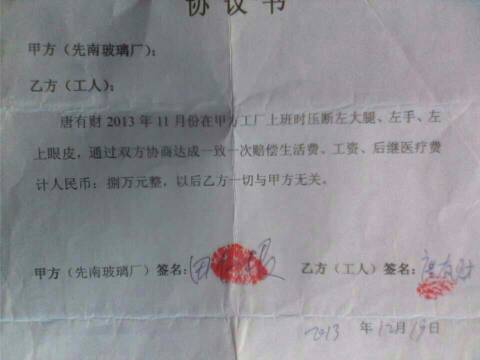 协议书
甲方（先南玻璃厂）：
乙方（工人）：
唐有财 2013 年 11 月份在甲方工厂上班时压断左大腿、左手、左
上眼皮，通过双方协商达成一致一次赔偿生活费、工资、后继医疗费
计人民币：捌万元整，以后乙方一切与甲方无关。
甲方（先南玻璃厂）签名：田
乙方（工人）签名：唐有财
2013 年12月19日